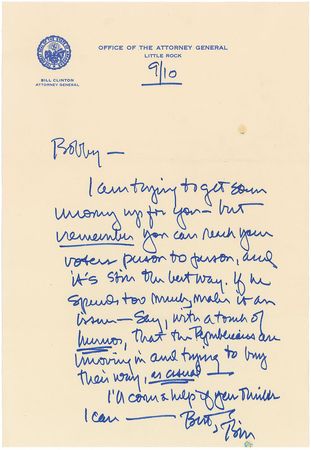 OFFICE OF THE ATTORNEY GENERAL
LITTLE ROCK
BILL CLINTON
ATTORNEY GENERAL
9/10
Bobby —
I am trying to get some
money up for you — but
remember you can reach your
voters person to person, and
it's still the best way. If he
spends too much, make it an
issue — Say, with a touch of
humor, that the Republicans are
moving in and trying to buy
their way, as usual —
I'll come & help if you think
I can — Best,
Bill